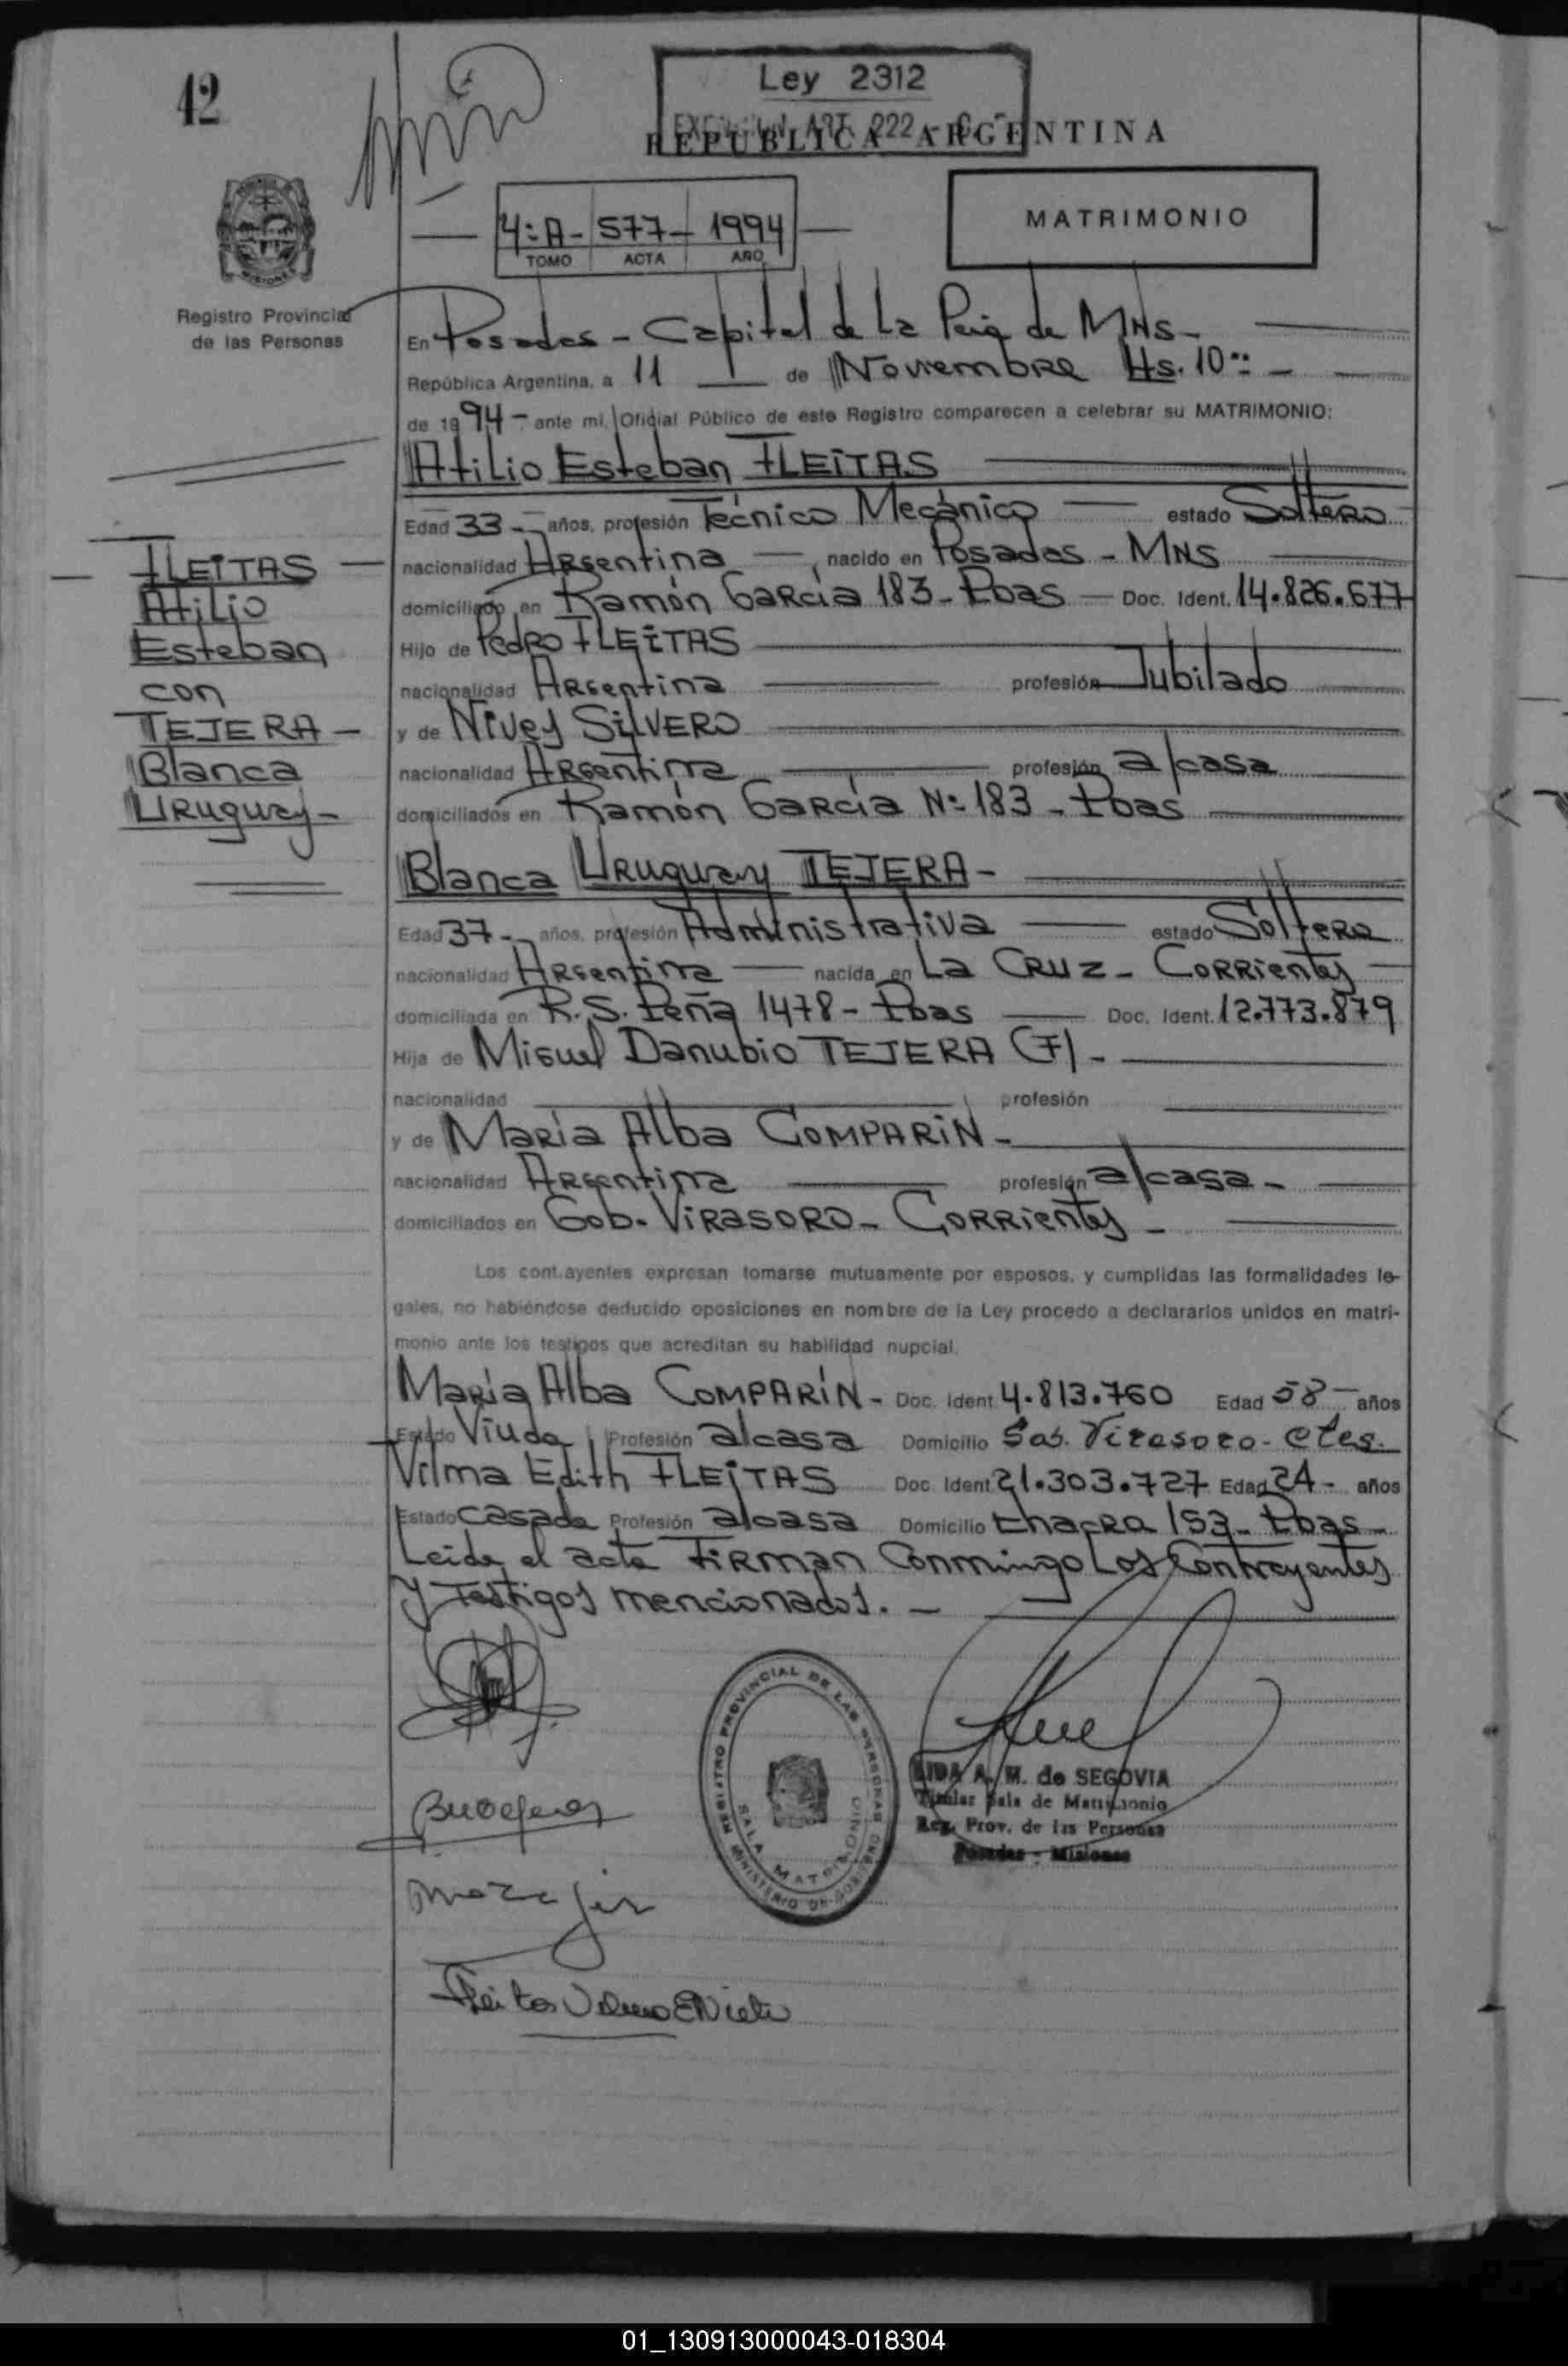 42
Ley 2312
REPUBLICA ARGENTINA
4:A- 577- 1994
TOMO ACTA AÑO
MATRIMONIO
Registro Provincial
de las Personas
En Posadas - Capital de La Pcia de MNS-
República Argentina, a 11 de Noviembre Hs. 10:
de 1994- ante mi, Oficial Público de este Registro comparecen a celebrar su MATRIMONIO:
Atilio Esteban FLEITAS
Edad 33- años, profesión Técnico Mecánico estado Soltero
nacionalidad Argentina, nacido en Posadas - MNS
domiciliado en Ramón García 183- Pdas Doc. Ident. 14.826.677
Hijo de Pedro FLEITAS
nacionalidad Argentina profesión Jubilado
y de Nivey SILVERO
nacionalidad Argentina profesión a/casa
domiciliados en Ramón García Nº 183 - Pdas
FLEITAS
Atilio
Esteban
con
TEJERA-
Blanca
Uruguay-
Blanca Uruguay TEJERA-
Edad 37- años, profesión Administrativa estado Soltera
nacionalidad Argentina nacida en La Cruz- Corrientes
domiciliada en R.S. Peña 1478- Pdas Doc. Ident. 12.773.879
Hija de Miguel Danubio TEJERA (F)-
nacionalidad profesión
y de María Alba COMPARIN-
nacionalidad Argentina profesión a/casa-
domiciliados en Gob. Virasoro- Corrientes-
Los contrayentes expresan tomarse mutuamente por esposos, y cumplidas las formalidades le-
gales, no habiéndose deducido oposiciones en nombre de la Ley procedo a declararlos unidos en matri-
monio ante los testigos que acreditan su habilidad nupcial.
María Alba COMPARÍN- Doc. Ident 4.813.760 Edad 58- años
Estado Viuda Profesión a/casa Domicilio Gob. Virasoro- Ctes.
Vilma Edith FLEITAS Doc. Ident 21.303.727 Edad 24- años
Estado Casada Profesión a/casa Domicilio Chacra 153- Pdas-
Leida el acta Firman Conmingo Los Contrayentes
y Testigos mencionados.-
REGISTRO PROVINCIAL DE LAS PERSONAS
SALA MATRIMONIO
MINISTERIO DE GOBIERNO
A. M. de SEGOVIA
Titular Sala de Matrimonio
Reg. Prov. de las Personas
Posadas - Misiones
01_130913000043-018304